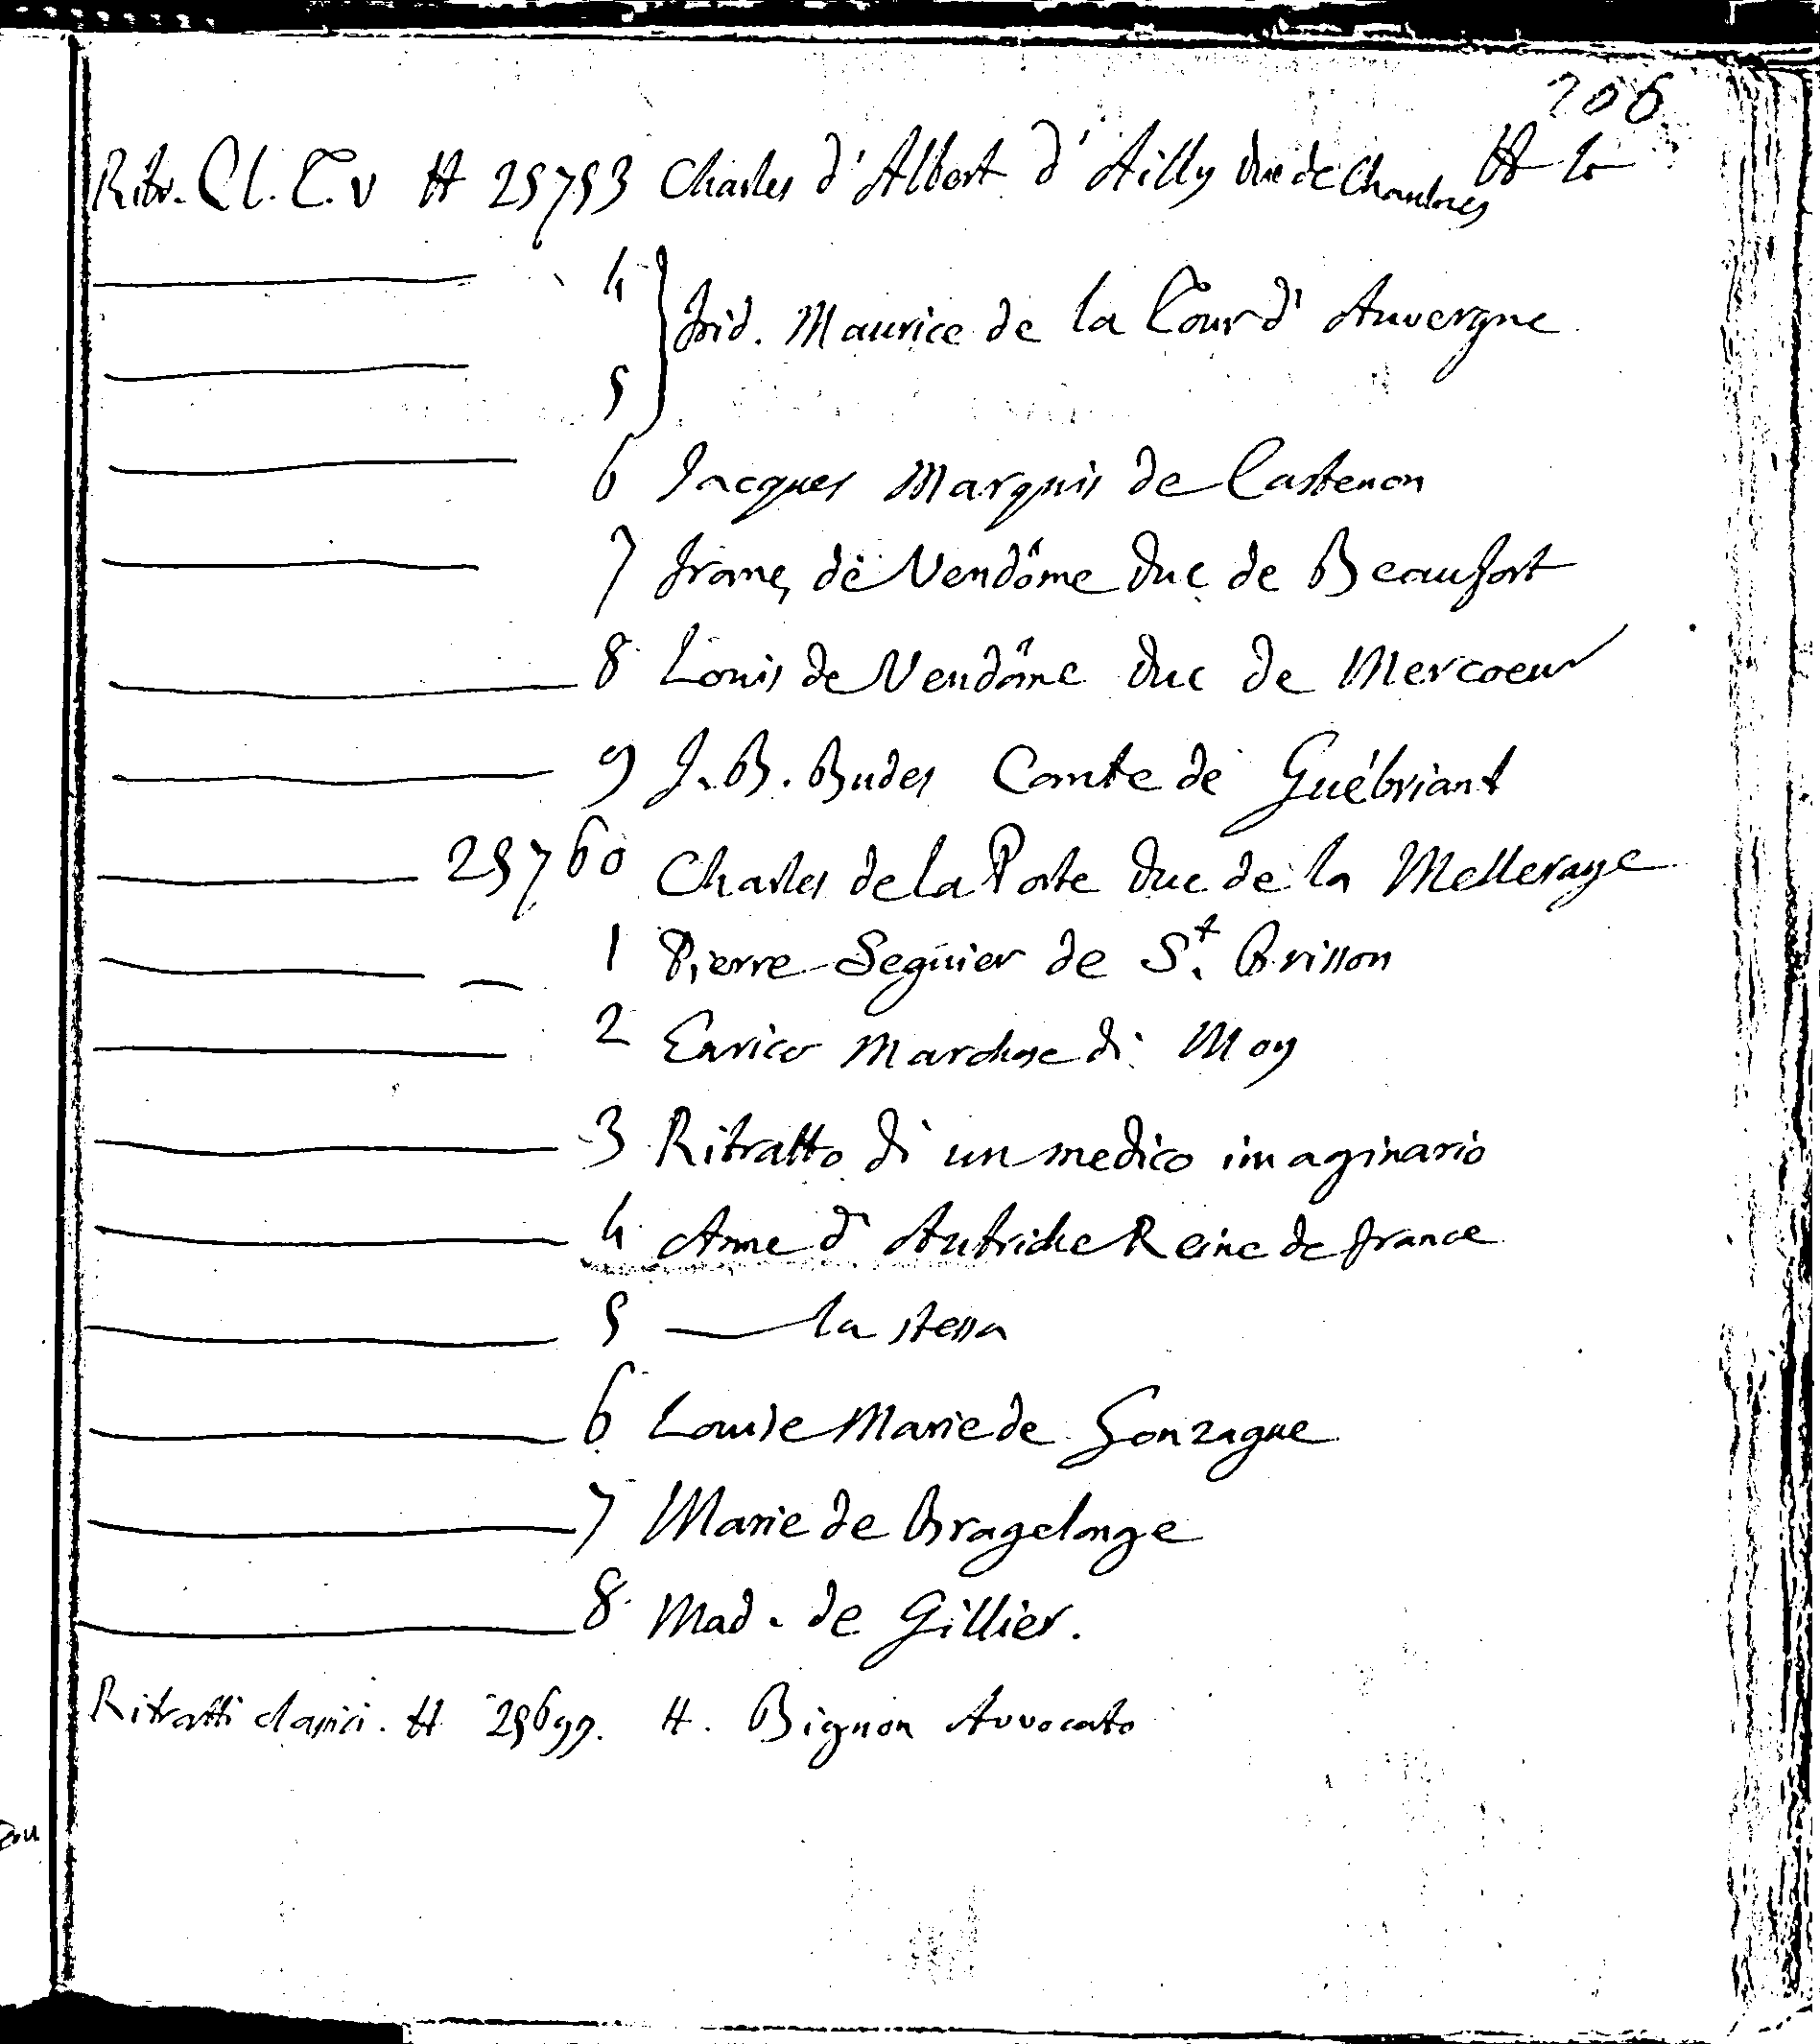 206
Ritr. Cl. T. V # 25753 Charles d'Albert d'Ailly Duc de Chaulnes # 6
4
Frid. Maurice de la Tour d'Auvergne
5
6 Jacques Marquis de Castenon
7 Franç. de Vendôme Duc de Beaufort
8 Louis de Vendôme Duc de Mercoeur
9 J. B. Budes Comte de Guébriant
25760 Charles de la Porte Duc de la Melleraye
1 Pierre Seguier de St. Brisson
2 Enrico Marchese di Moy
3 Ritratto di un medico imaginario
4 Anne d'Autriche Reine de france
5 — la stessa
6 Louise Marie de Gonzague
7 Marie de Bragelonge
8 Mad. de Gillier.
Ritratti classici. # 25699. H. Bignon Avvocato